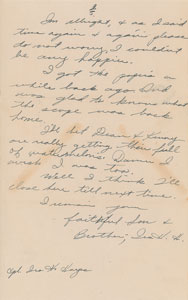 I'm allright, & as I said
time again & again please
do not worry, I couldn't
be any happier.
I got the papers a
while back again Dad
was glad to know what
the score was back
home.
I'll bet Dean & Kenny
are really getting their fill
of watermelons. Damn I
wish I was too.
Well I think I'll
close here till next time.
I remain your
faithful Son &
Brother, Ira H.
Cpl. Ira H. Hayes